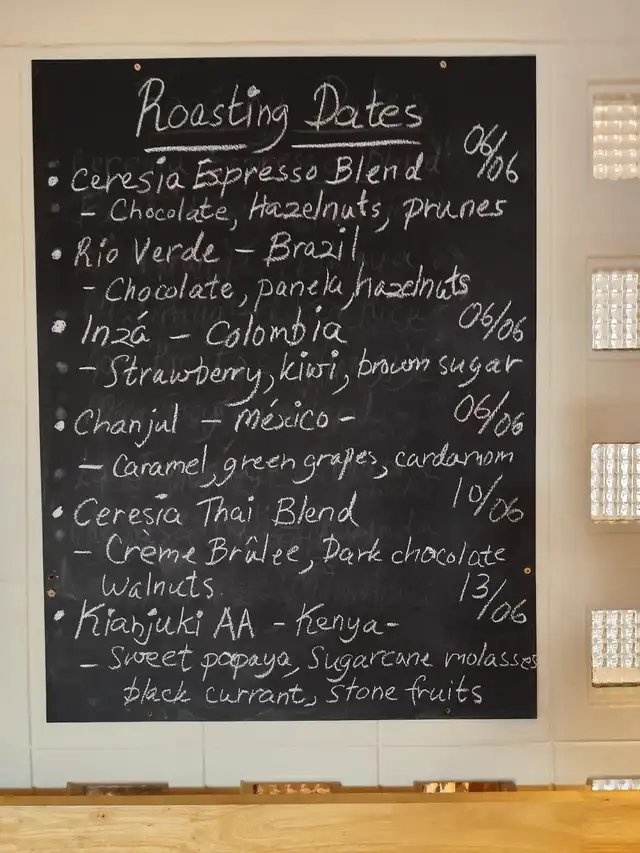 Roasting Dates
• Ceresia Espresso Blend 06/06
- Chocolate, Hazelnuts, prunes
• Rio Verde - Brazil
- Chocolate, panela, hazelnuts
• Inzá - Colombia 06/06
- Strawberry, kiwi, brown sugar
• Chanjul - México - 06/06
- Caramel, green grapes, cardamom
• Ceresia Thai Blend 10/06
- Crème Brûlee, Dark chocolate
walnuts 13/06
• Kianjuki AA - Kenya -
- Sweet papaya, Sugarcane molasses
black currant, Stone fruits